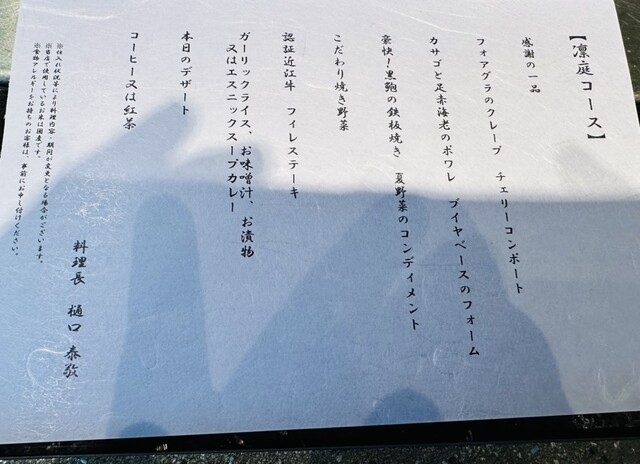 【凛庭コース】
感謝の一品
フォアグラのクレープ　チェリーコンポート
カサゴと足赤海老のポワレ　ブイヤベースのフォーム
豪快！黒鮑の鉄板焼き　夏野菜のコンディメント
こだわり焼き野菜
認証近江牛　フィレステーキ
ガーリックライス、お味噌汁、お漬物
又はエスニックスープカレー
本日のデザート
コーヒー又は紅茶
料理長　樋口　泰敬
※仕入れ状況等により料理内容・期間が変更となる場合がございます。
※当店で使用しているお米は国産です。
※食物アレルギーをお持ちのお客様は、事前にお申し付けください。